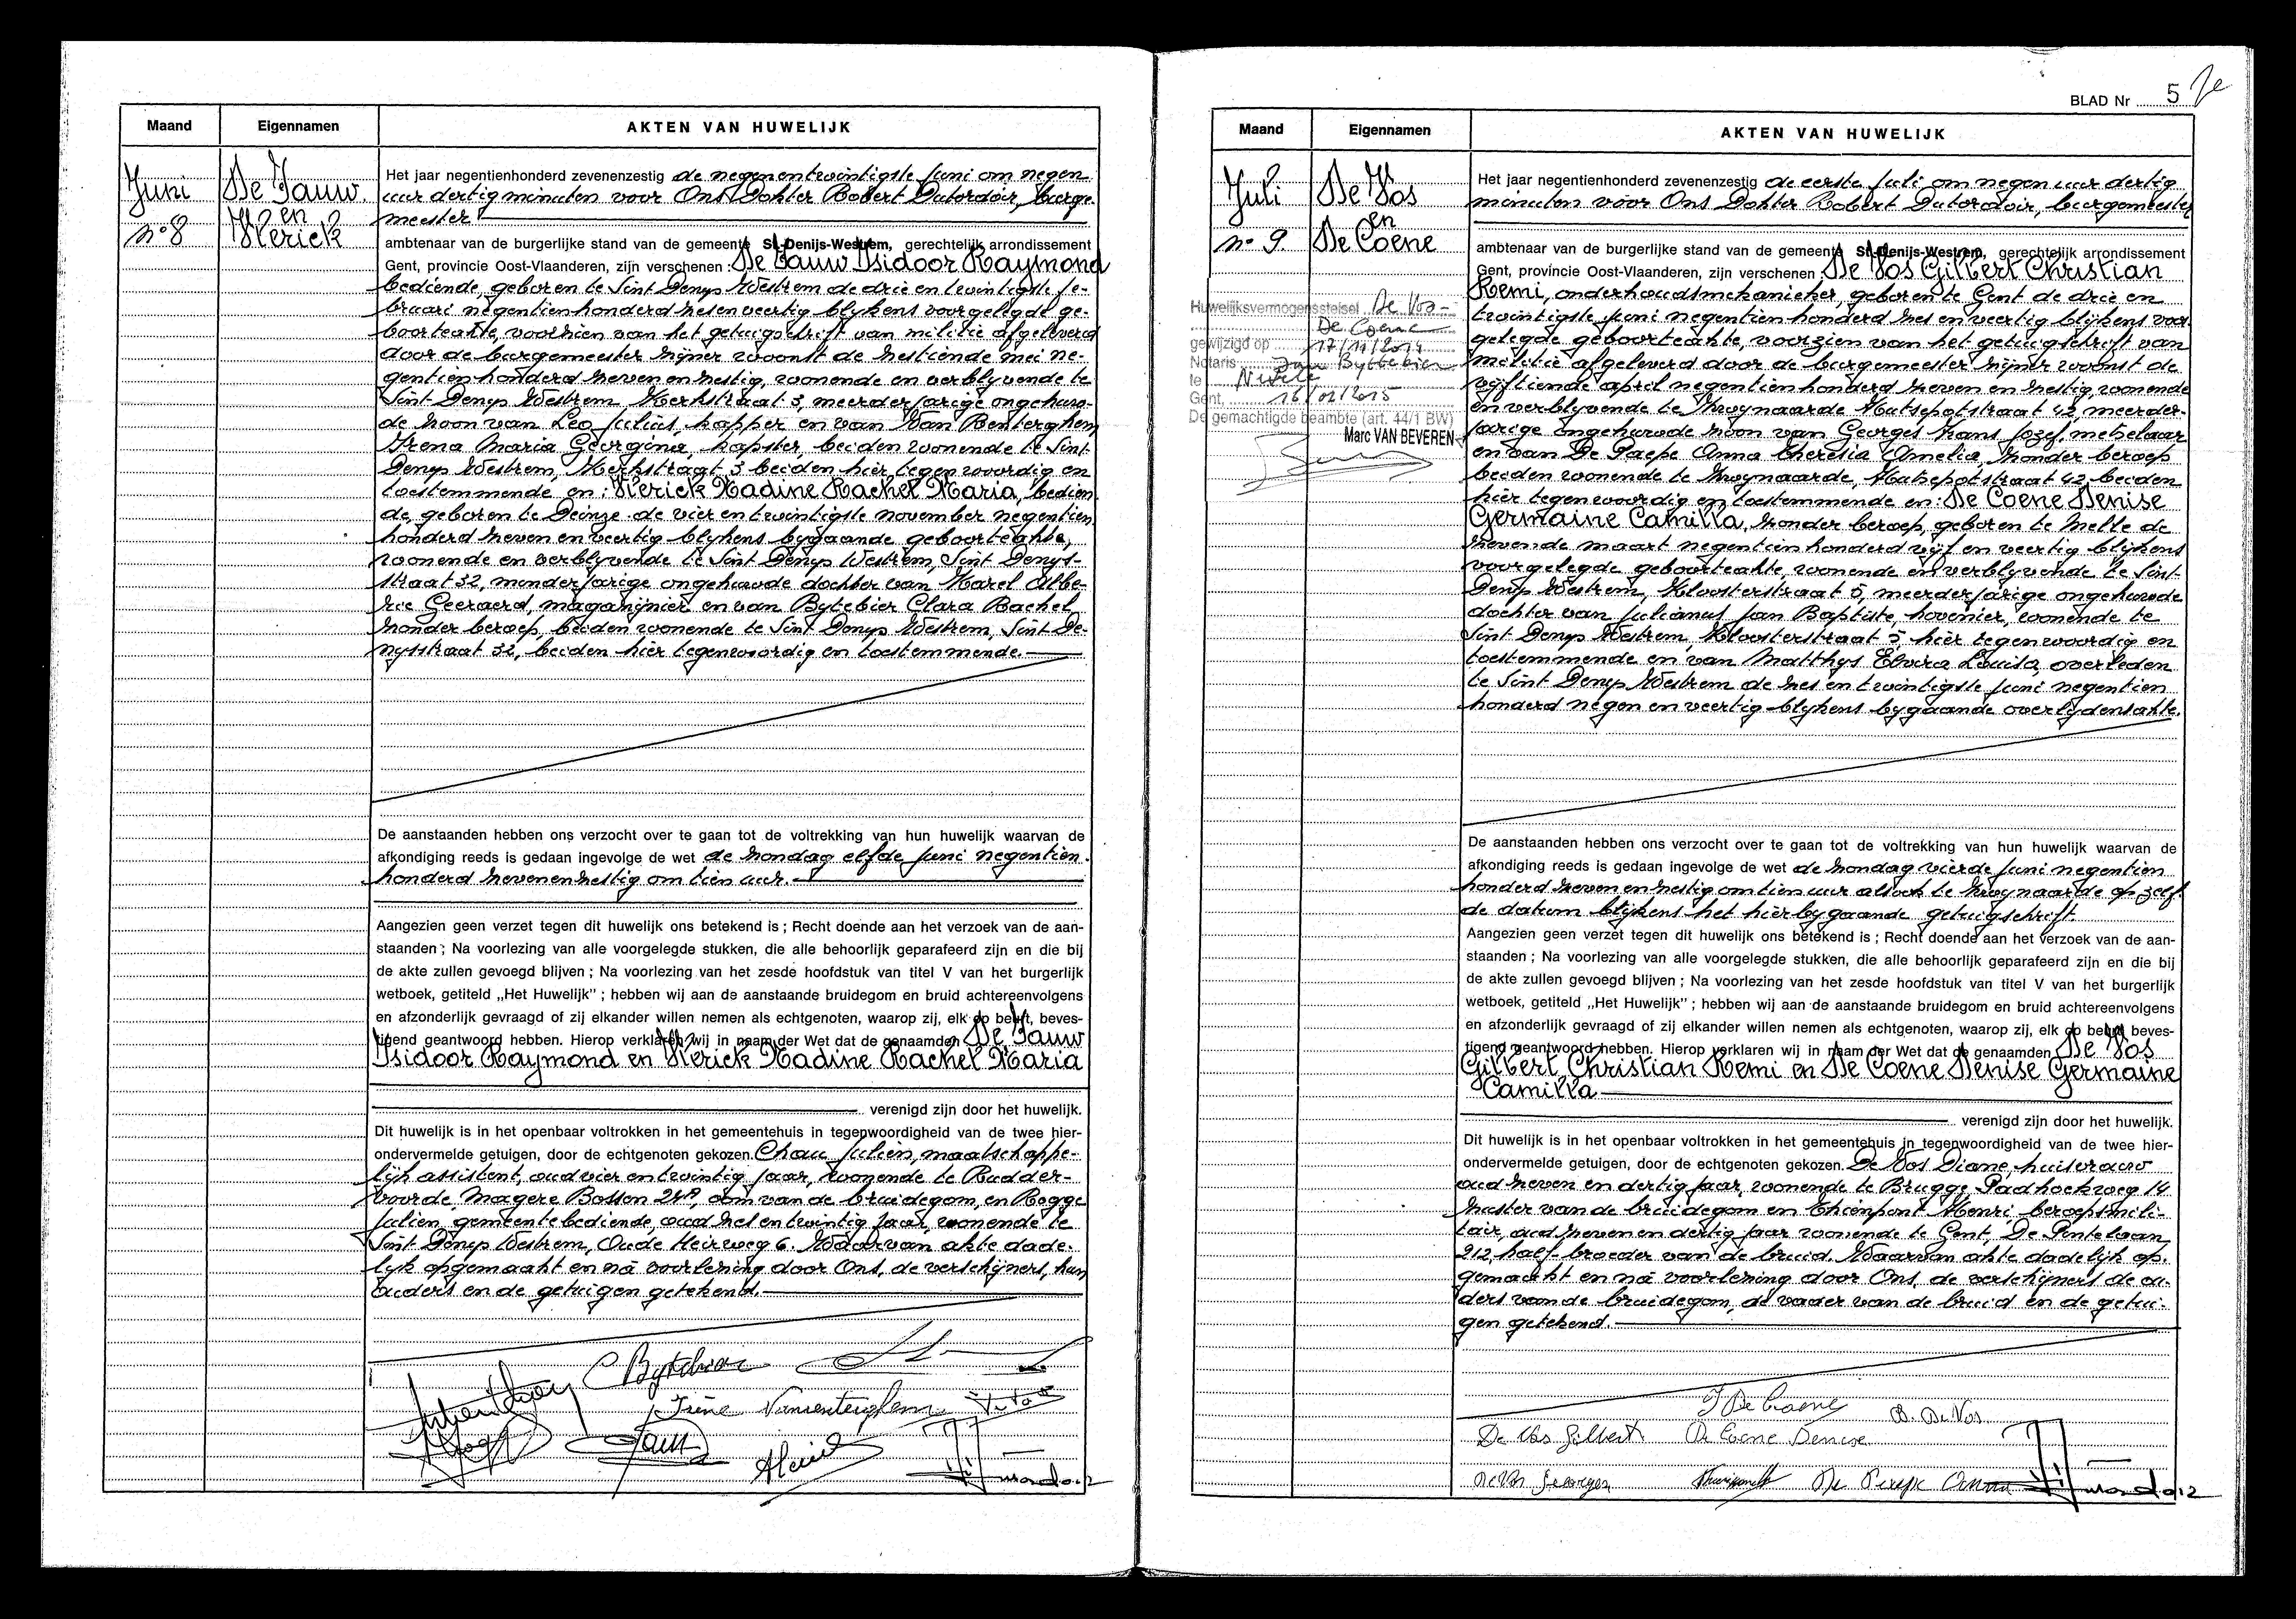 Maand
Eigennamen
AKTEN VAN HUWELIJK
Juni
n° 8
De Jauw
en
Sierick
Het jaar negentienhonderd zevenenzestig de negenentwintigste juni om negen
uur dertig minuten voor Ons Dokter Robert Dutordoir, burge-
meester
ambtenaar van de burgerlijke stand van de gemeente St-Denijs-Westrem, gerechtelijk arrondissement
Gent, provincie Oost-Vlaanderen, zijn verschenen : De Jauw Isidoor Raymond
bediende, geboren te Sint Denys Westrem de drie en twintigste fe-
bruari negentien honderd zes en veertig blykens voorgelegde ge-
boorteakte, voorzien van het getuigschrift van militie afgeleverd
door de burgemeester zijner woonst de zestiende mei ne-
gentien honderd zeven en zestig, wonende en verblyvende te
Sint Denys Westrem Kerkstraat 3, meerderjarige ongehuw-
de zoon van Leo Julius, kapper en van Van Renterghem
Irena Maria Georgina, kapster, beiden wonende te Sint
Denys Westrem, Kerkstraat 3 beiden hier tegenwoordig en
toestemmende en : Nadine Rachel Maria, bedien
de, geboren te Deinze de vier en twintigste november negentien
honderd zeven en veertig blykens bygaande geboorteakte,
wonende en verblyvende te Sint Denys Westrem, Sint Denys-
straat 32, minderjarige ongehuwde dochter van Karel Albe-
ric Geeraerd, magazijnier en van Bytebier Clara Rachel,
zonder beroep, beiden wonende te Sint Denys Westrem, Sint De-
nysstraat 32, beiden hier tegenwoordig en toestemmende.
De aanstaanden hebben ons verzocht over te gaan tot de voltrekking van hun huwelijk waarvan de
afkondiging reeds is gedaan ingevolge de wet de zondag elfde juni negentien
honderd zevenenzestig om tien uur.
Aangezien geen verzet tegen dit huwelijk ons betekend is ; Recht doende aan het verzoek van de aan-
staanden ; Na voorlezing van alle voorgelegde stukken, die alle behoorlijk geparafeerd zijn en die bij
de akte zullen gevoegd blijven ; Na voorlezing van het zesde hoofdstuk van titel V van het burgerlijk
wetboek, getiteld „Het Huwelijk" ; hebben wij aan de aanstaande bruidegom en bruid achtereenvolgens
en afzonderlijk gevraagd of zij elkander willen nemen als echtgenoten, waarop zij, elk op beurt, beves-
tigend geantwoord hebben. Hierop verklaren wij in naam der Wet dat de genaamden De Jauw
Isidoor Raymond en Nadine Rachel Maria
verenigd zijn door het huwelijk.
Dit huwelijk is in het openbaar voltrokken in het gemeentehuis in tegenwoordigheid van de twee hier-
ondervermelde getuigen, door de echtgenoten gekozen. Julien, maatschappe-
lijk assistent, oud vier en twintig jaar, wonende te Rudder-
voorde, Magere Bossen, oom van de bruidegom, en Rogge
Julien, gemeentebediende, oud zes en twintig jaar, wonende te
Sint Denys Westrem, Oude Heirweg 6. Waarvan akte dade-
lyk opgemaakt en na voorlezing door Ons, de verschijners, hun
ouders en de getuigen getekend.
C Bytebier
Irène Vanrenterghem
BLAD Nr 5
Maand
Eigennamen
AKTEN VAN HUWELIJK
Juli
n° 9.
De Vos
en
De Coene
Huwelijksvermogensstelsel De Vos -
De Coene
gewijzigd op 17/11/2014
Notaris Jan Bytebier
te Nevele
Gent, 16/01/2015
De gemachtigde beambte (art. 44/1 BW)
Marc VAN BEVEREN
Het jaar negentienhonderd zevenenzestig de eerste juli om negen uur dertig
minuten voor Ons Dokter Robert Dutordoir, burgemeester
ambtenaar van de burgerlijke stand van de gemeente St-Denijs-Westrem, gerechtelijk arrondissement
Gent, provincie Oost-Vlaanderen, zijn verschenen : De Vos Gilbert Christian
Remi, onderhoudsmekanieker, geboren te Gent de drie en
twintigste juni negentien honderd zes en veertig blijkens voor
gelegde geboorteakte, voorzien van het getuigschrift van
militie afgeleverd door de burgemeester zijner woonst de
vijftiende april negentienhonderd zeven en zestig, wonende
en verblyvende te Zwynaarde Hutsepotstraat 42, meerder-
jarige ongehuwde zoon van Georges Frans Jozef, metselaar
en van De Paepe Anna Theresia Amelia, zonder beroep
beiden wonende te Zwynaarde, Hutsepotstraat 42, beiden
hier tegenwoordig en toestemmende en : De Coene Denise
Germaine Camilla, zonder beroep, geboren te Melle de
zevende maart negentien honderd vijf en veertig blijkens
voorgelegde geboorteakte, wonende en verblyvende te Sint-
Denys Westrem, Kloosterstraat 5, meerderjarige ongehuwde
dochter van Julianus Jan Baptiste, hovenier, wonende te
Sint Denys Westrem, Kloosterstraat 5, hier tegenwoordig en
toestemmende en van Matthys Elvira Louisa, overleden
te Sint Denys Westrem de zes en twintigste juni negentien
honderd negen en veertig blykens bygaande overlydensakte.
De aanstaanden hebben ons verzocht over te gaan tot de voltrekking van hun huwelijk waarvan de
afkondiging reeds is gedaan ingevolge de wet de zondag vierde juni negentien
honderd zeven en zestig om tien uur alsook te Zwynaarde op zelf-
de datum blijkens het hierbygaande getuigschrift.
Aangezien geen verzet tegen dit huwelijk ons betekend is ; Recht doende aan het verzoek van de aan-
staanden ; Na voorlezing van alle voorgelegde stukken, die alle behoorlijk geparafeerd zijn en die bij
de akte zullen gevoegd blijven ; Na voorlezing van het zesde hoofdstuk van titel V van het burgerlijk
wetboek, getiteld „Het Huwelijk" ; hebben wij aan de aanstaande bruidegom en bruid achtereenvolgens
en afzonderlijk gevraagd of zij elkander willen nemen als echtgenoten, waarop zij, elk op beurt beves-
tigend geantwoord hebben. Hierop verklaren wij in naam der Wet dat de genaamden De Vos
Gilbert Christian Remi en De Coene Denise Germaine
Camilla
verenigd zijn door het huwelijk.
Dit huwelijk is in het openbaar voltrokken in het gemeentehuis in tegenwoordigheid van de twee hier-
ondervermelde getuigen, door de echtgenoten gekozen. De Vos Diane, huisvrouw
oud zeven en dertig jaar, wonende te Brugge Padhoekweg 14
zuster van de bruidegom en Thienpont Henri beroepsmili-
tair, oud zeven en dertig jaar wonende te Gent, De Pintelaan
212, half-broeder van de bruid. Waarvan akte dadelijk op-
gemaakt en na voorlezing door Ons, de verschijners de ou-
ders van de bruidegom, de vader van de bruid en de getui-
gen getekend.
J De Coene
D. De Vos
De Vos Gilbert
De Coene Denise
De Vos Georges
Thienpont
De Paepe Anna